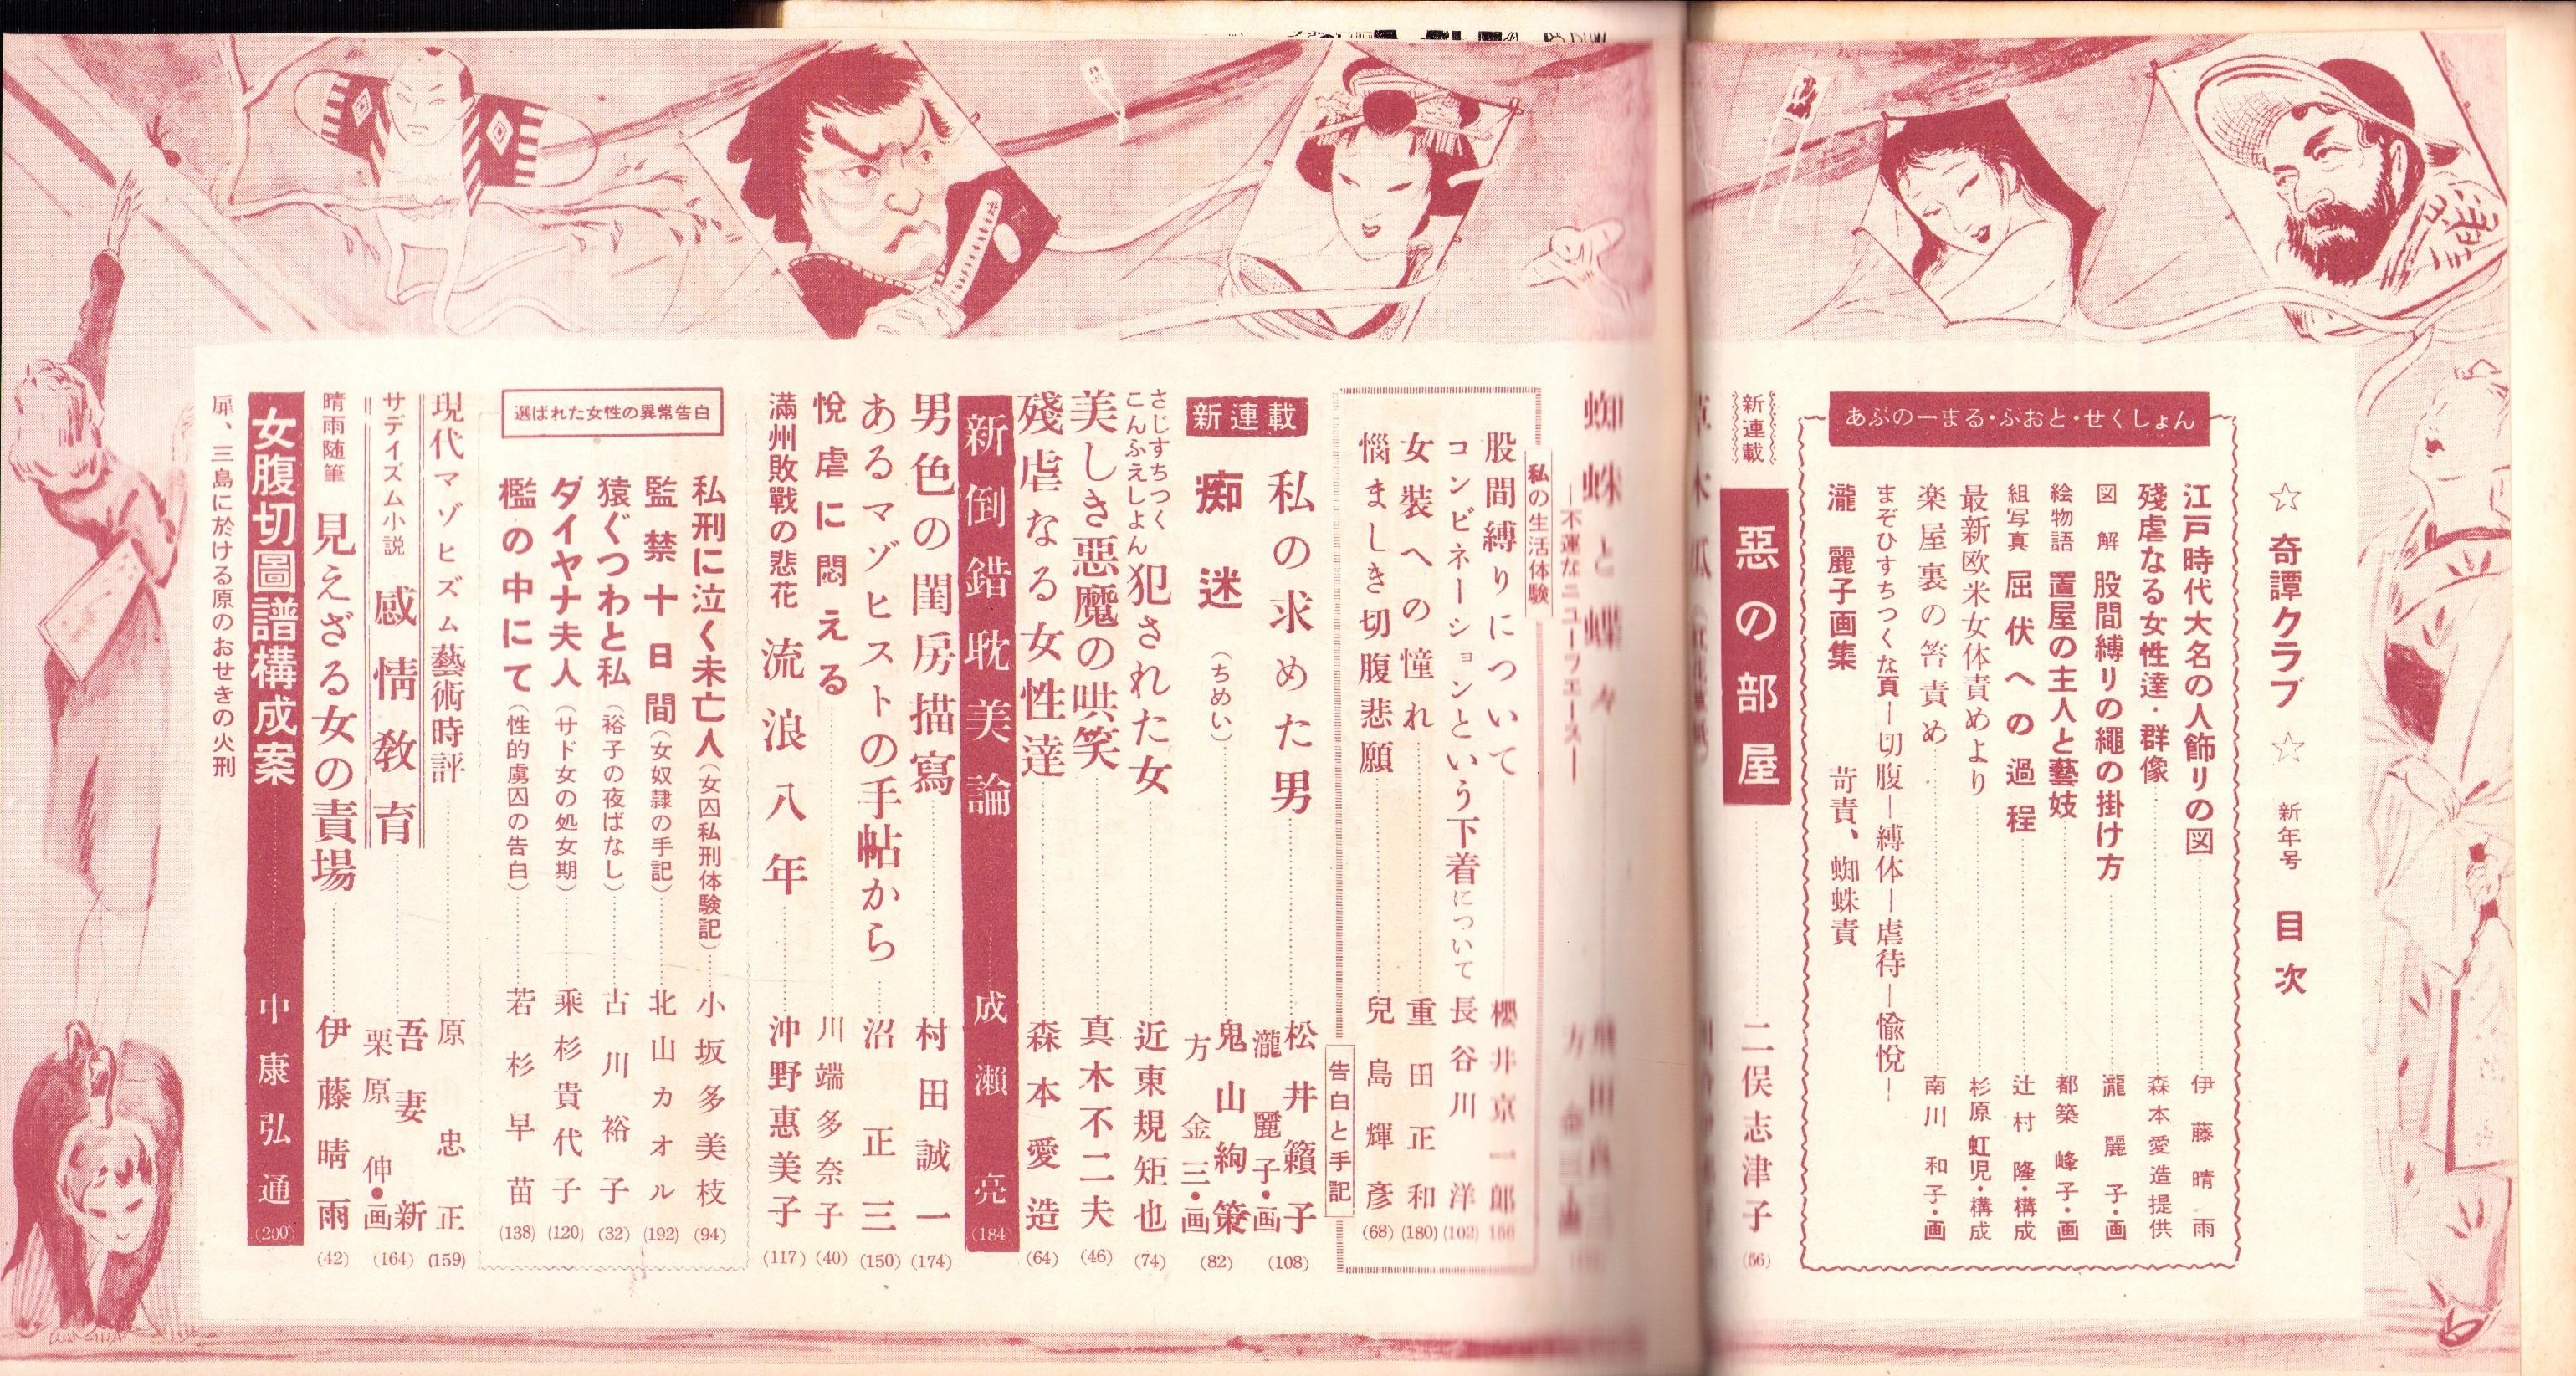 ☆ 奇譚クラブ ☆ 新年号 目次
あぶのーまる・ふおと・せくしょん
江戸時代大名の人飾りの図 伊藤晴雨
殘虐なる女性達・群像 森本愛造提供
図解 股間縛りの繩の掛け方 瀧麗子・画
絵物語 置屋の主人と藝妓 都築峰子・画
組写真 屈伏への過程 辻村隆・構成
最新欧米女体責めより 杉原虹児・構成
楽屋裏の笞責め 南川和子・画
まぞひすちつくな頁―切腹―縛体―虐待―愉悦―
瀧麗子画集 苛責、蜘蛛責
新連載
惡の部屋 二俣志津子 (56)
蜘蛛と蝶々
私の生活体験
股間縛りについて 櫻井京一郎
コンビネーションという下着について 長谷川洋 (102)
女装への憧れ 重田正和 (180)
惱ましき切腹悲願 兒島輝彥 (68)
告白と手記
私の求めた男 松井籟子 瀧麗子・画 (108)
新連載
痴迷 (ちめい) 鬼山絢策 方金三・画 (82)
さじすちつく こんふえしよん 犯された女 近東規矩也 (74)
美しき惡魔の哄笑 真木不二夫 (46)
殘虐なる女性達 森本愛造 (64)
新倒錯耽美論 成瀬亮 (184)
男色の閨房描寫 村田誠一 (174)
あるマゾヒストの手帖から 沼正三 (150)
悅虐に悶える 川端多奈子 (40)
滿州敗戰の悲花 流浪八年 沖野惠美子 (117)
選ばれた女性の異常告白
私刑に泣く未亡人(女囚私刑体験記) 小坂多美枝 (94)
監禁十日間(女奴隷の手記) 北山カオル (192)
猿ぐつわと私(裕子の夜ばなし) 古川裕子 (32)
ダイヤナ夫人(サド女の処女期) 乘杉貴代子 (120)
檻の中にて(性的虜囚の告白) 若杉早苗 (138)
現代マゾヒズム藝術時評 原忠正 (159)
サデイズム小説 感情敎育 吾妻新 栗原伸・画 (164)
晴雨随筆 見えざる女の責場 伊藤晴雨 (42)
女腹切圖譜構成案 中康弘通 (200)
扉、三島に於ける原のおせきの火刑